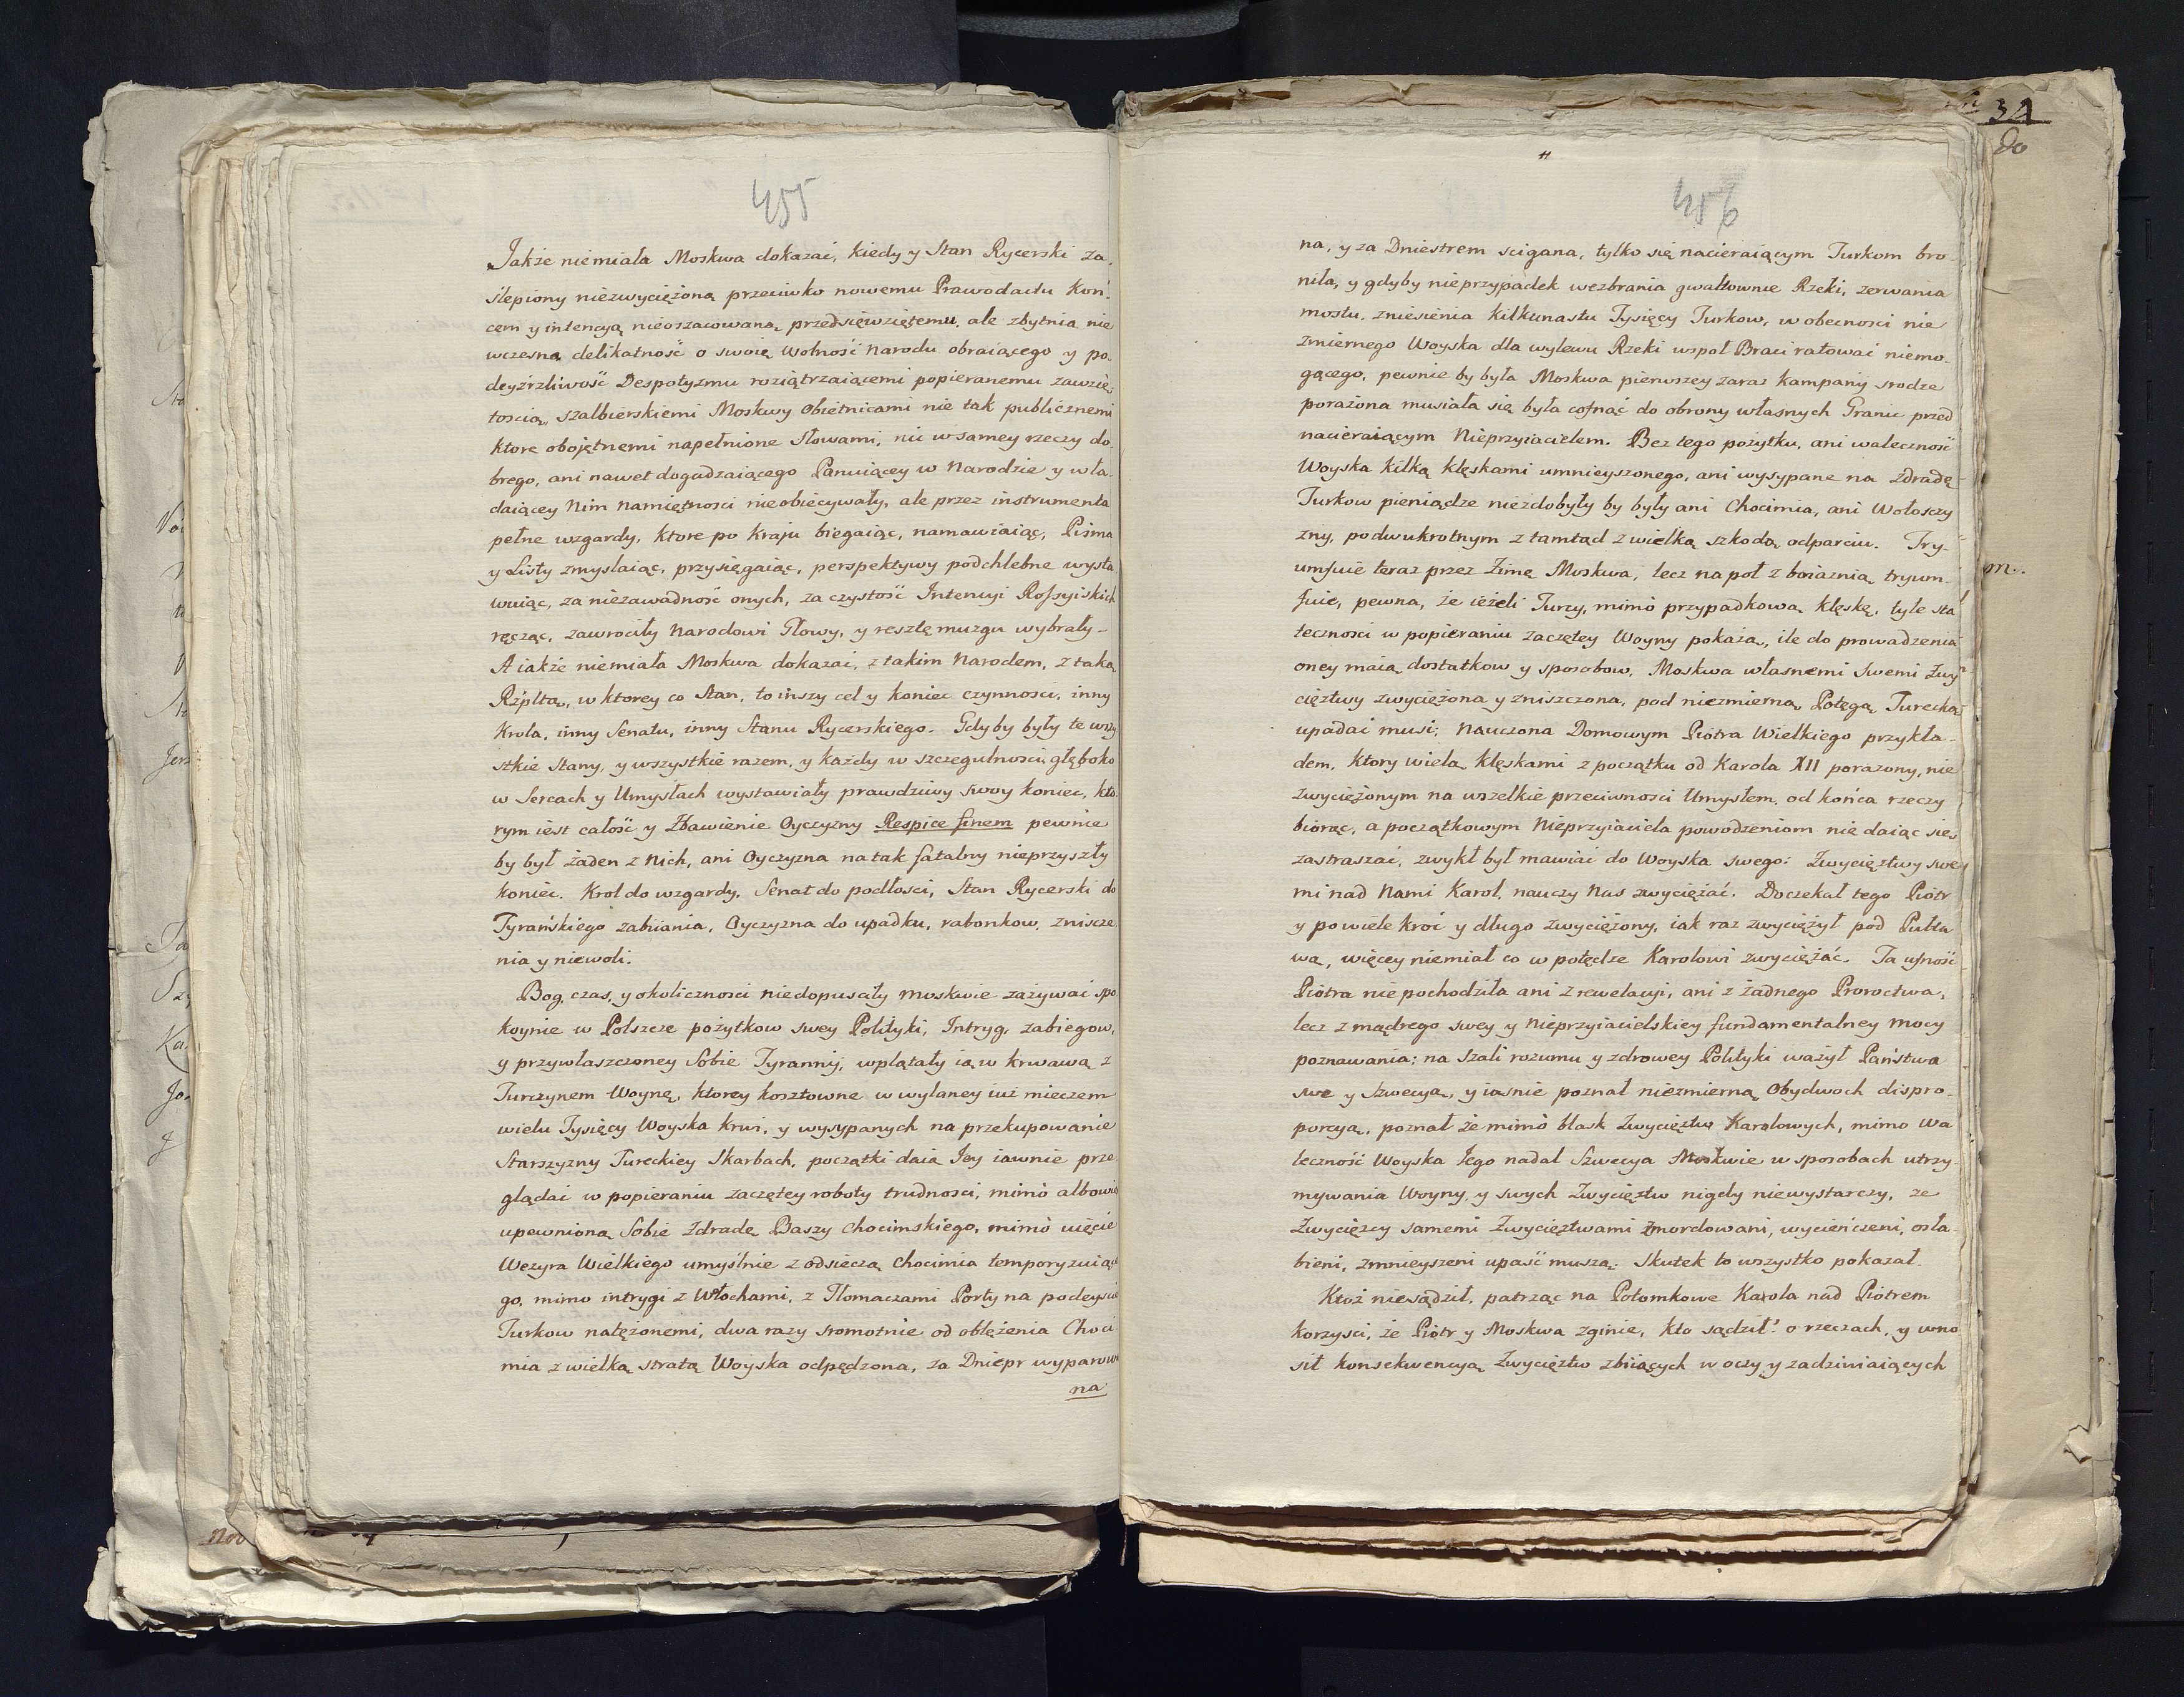 455
Jakże niemiała Moskwa dokazać, kiedy y Stan Rycerski za-
ślepiony niezwyciężoną przeciwko nowemu Prawodactu Koń-
cem y intencyą nieoszacowaną przedsięwziętemu, ale zbytnią nie
wczesną delikatność o swoię Wolność Narodu obraiącego y po-
deyźrzliwość Despotyzmu roziątrzaiącemi popieranemu zawzię-
tością, szalbierskiemi Moskwy Obietnicami nie tak publicznemi
ktore obojętnemi napełnione Słowami, nic w samey rzeczy do-
brego, ani nawet dogadzaiącego Panuiącey w Narodzie y wła-
daiącey Nim Namiętności nieobiecywały, ale przez instrumenta
pełne wzgardy, ktore po Kraju biegaiąc, namawiaiąc, Pisma
y Listy zmyslaiąc, przysięgaiąc, perspektywy podchlebne wysta
wuiąc, za niezawadność onych, za czystość Intencyi Rossyiskich
ręcząc, zawrociły Narodowi Głowy, y resztę muzgu wybrały-
A iakże niemiała Moskwa dokazać, z takim Narodem, z taką
Rzplta, w ktorey co Stan, to inszy cel y koniec czynności, inny
Krola, inny Senatu, inny Stanu Rycerskiego. Gdyby były te wszy
stkie Stany, y wszystkie razem, y każdy w szczegulności, głęboko
w Sercach y Umysłach wystawiały prawdziwy swoy koniec, kto-
rym iest całość y Zbawienie Oyczyzny Respice finem pewnie
by był żaden z Nich, ani Oyczyzna na tak fatalny nieprzyszły
koniec. Krol do wzgardy, Senat do podłości, Stan Rycerski do
Tyrańskiego zabiiania, Oyczyzna do upadku, rabonkow, znisze
nia y niewoli.
Bog, czas, y okoliczności niedopusciły Moskwie zażywać spo
koynie w Polszcze pożytkow swey Polityki, Intryg, zabiegow,
y przywłaszczoney Sobie Tyrannij, wplątały ią w krwawą z
Turczynem Woynę, ktorey kosztowne w wylaney iuż mieczem
wielu Tysięcy Woyska krwi, y wysypanych na przekupowanie
Starszyzny Tureckiey Skarbach, początki daią Jey iawnie prze-
glądać w popieraniu zaczętey roboty trudności, mimo albowie
upewnioną Sobie Zdradę Baszy Chocimskiego, mimo uięcie
Wezyra Wielkiego umyślnie z odsieczą Chocimia temporyzuiące
go, mimo intrygi z Włochami, z Tłomaczami Porty na podeyście
Turkow natężonemi, dwa razy sromotnie od oblężenia Choci
mia z wielką stratą Woyska odpędzona, za Dniepr wyparowa
na
456
na, y za Dniestrem scigana, tylko się nacieraiącym Turkom bro-
niła, y gdyby nieprzypadek wezbrania gwałtownie Rzeki, zerwania
mostu, zniesienia kilkunastu Tysięcy Turkow, w obecności nie
zmiernego Woyska dla wylewu Rzeki wspoł Braci ratować niemo-
gącego, pewnie by była Moskwa pierwszey zaraz Kampanij srodze
porażona musiała się była cofnąć do obrony własnych Granic przed
nacieraiącym Nieprzyiacielem. Bez tego pożytku, ani waleczność
Woyska kilką klęskami umnieyszonego, ani wysypane na Zdradę
Turkow pieniądze niezdobyły by były ani Chocimia, ani Wołoszczy
zny, po dwukrotnym z tamtąd z wielką szkodą odparciu. Try-
umfuie teraz przez Zimę Moskwa, lecz na poł z boiaznią tryum-
fuie, pewna, że ieżeli Turcy, mimo przypadkową klęskę, tyle sta
teczności w popieraniu zaczętey Woyny pokażą, ile do prowadzenia
oney maią dostatkow y sposobow, Moskwa własnemi Swemi Zwy-
cięztwy zwyciężona y zniszczona, pod niezmierną Potęgą Turecką
upadać musi; Nauczona Domowym Piotra Wielkiego przykła-
dem, ktory wielą klęskami z początku od Karola XII porażony, nie
zwyciężonym na wszelkie przeciwności Umysłem, od końca rzeczy
biorąc, a początkowym Nieprzyiaciela powodzeniom nie daiąc się
zastraszać, zwykł był mawiać do Woyska swego: Zwycięztwy swe
mi nad Nami Karol, nauczy Nas zwyciężać. Doczekał tego Piotr
y po wiele kroć y długo zwyciężony, iak raz zwyciężył pod Pułta
wą, więcey niemiał co w potędze Karolowi zwyciężać. Ta ufność
Piotra nie pochodziła ani z rewelacyi, ani z żadnego Proroctwa,
lecz z mądrego swey y Nieprzyiacielskiey fundamentalney mocy
poznawania; na Szali rozumu y zdrowey Polityki ważył Państwa
swe y Szwecyą, y iaśnie poznał niezmierną Obydwoch dispro-
porcyą, poznał że mimo blask Zwycięztw Karolowych, mimo Wa
leczność Woyska Jego nadal Szwecya Moskwie w sposobach utrzy-
mywania Woyny, y swych Zwycięztw nigdy niewystarczy, że
Zwycięzcy samemi Zwycięztwami zmordowani, wycieńczeni, osła-
bieni, zmnieyszeni upaść muszą. Skutek to wszystko pokazał.
Ktoż niesądził, patrząc na Potomkowe Karola nad Piotrem
korzyści, że Piotr y Moskwa zginie, kto sądził o rzeczach, y wno
sił konsekwencyą Zwycięztw zbiiących w oczy y zadziwiaiących
34
do
m.